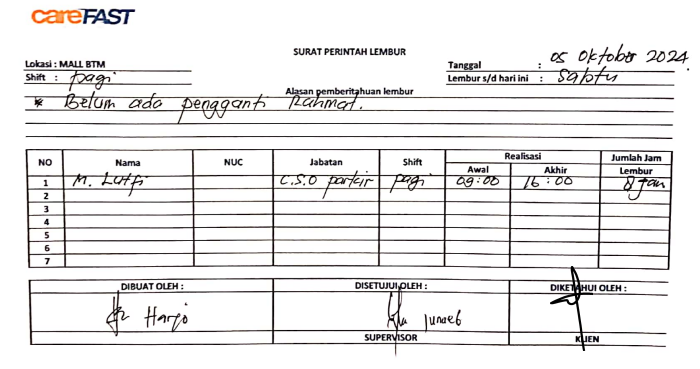 careFAST
SURAT PERINTAH LEMBUR
Lokasi : MALL BTM
Tanggal : 05 Oktober 2024
Shift : pagi
Lembur s/d hari ini : Sabtu
Alasan pemberitahuan lembur
* Belum ada pengganti Rahmat.
NO Nama NUC Jabatan Shift Realisasi Jumlah Jam
Awal Akhir Lembur
1 M. Lutfi C.S.O parkir pagi 09:00 16:00 8 Jam
2
3
4
5
6
7
DIBUAT OLEH : DISETUJUI OLEH : DIKETAHUI OLEH :
Haryo Junaeb
SUPERVISOR KLIEN